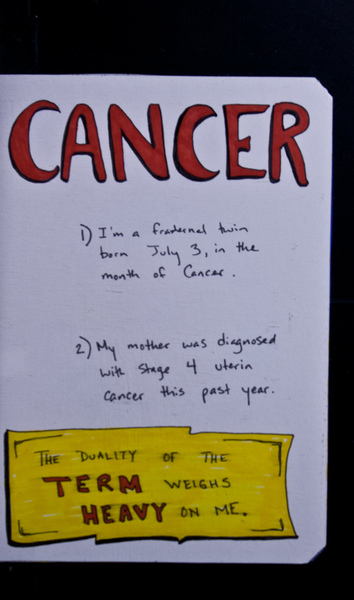 CANCER
1) I'm a fraternal twin
born July 3, in the
month of Cancer.
2) My mother was diagnosed
with stage 4 uterin
cancer this past year.
THE DUALITY OF THE
TERM WEIGHS
HEAVY ON ME.